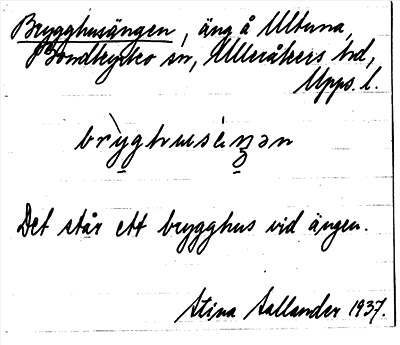 Brygghusängen, äng å Ultuna,
Bondkyrko sn, Ulleråkers hd,
Upps. l.
Det står ett brygghus vid ängen.
Stina Aallander 1937.